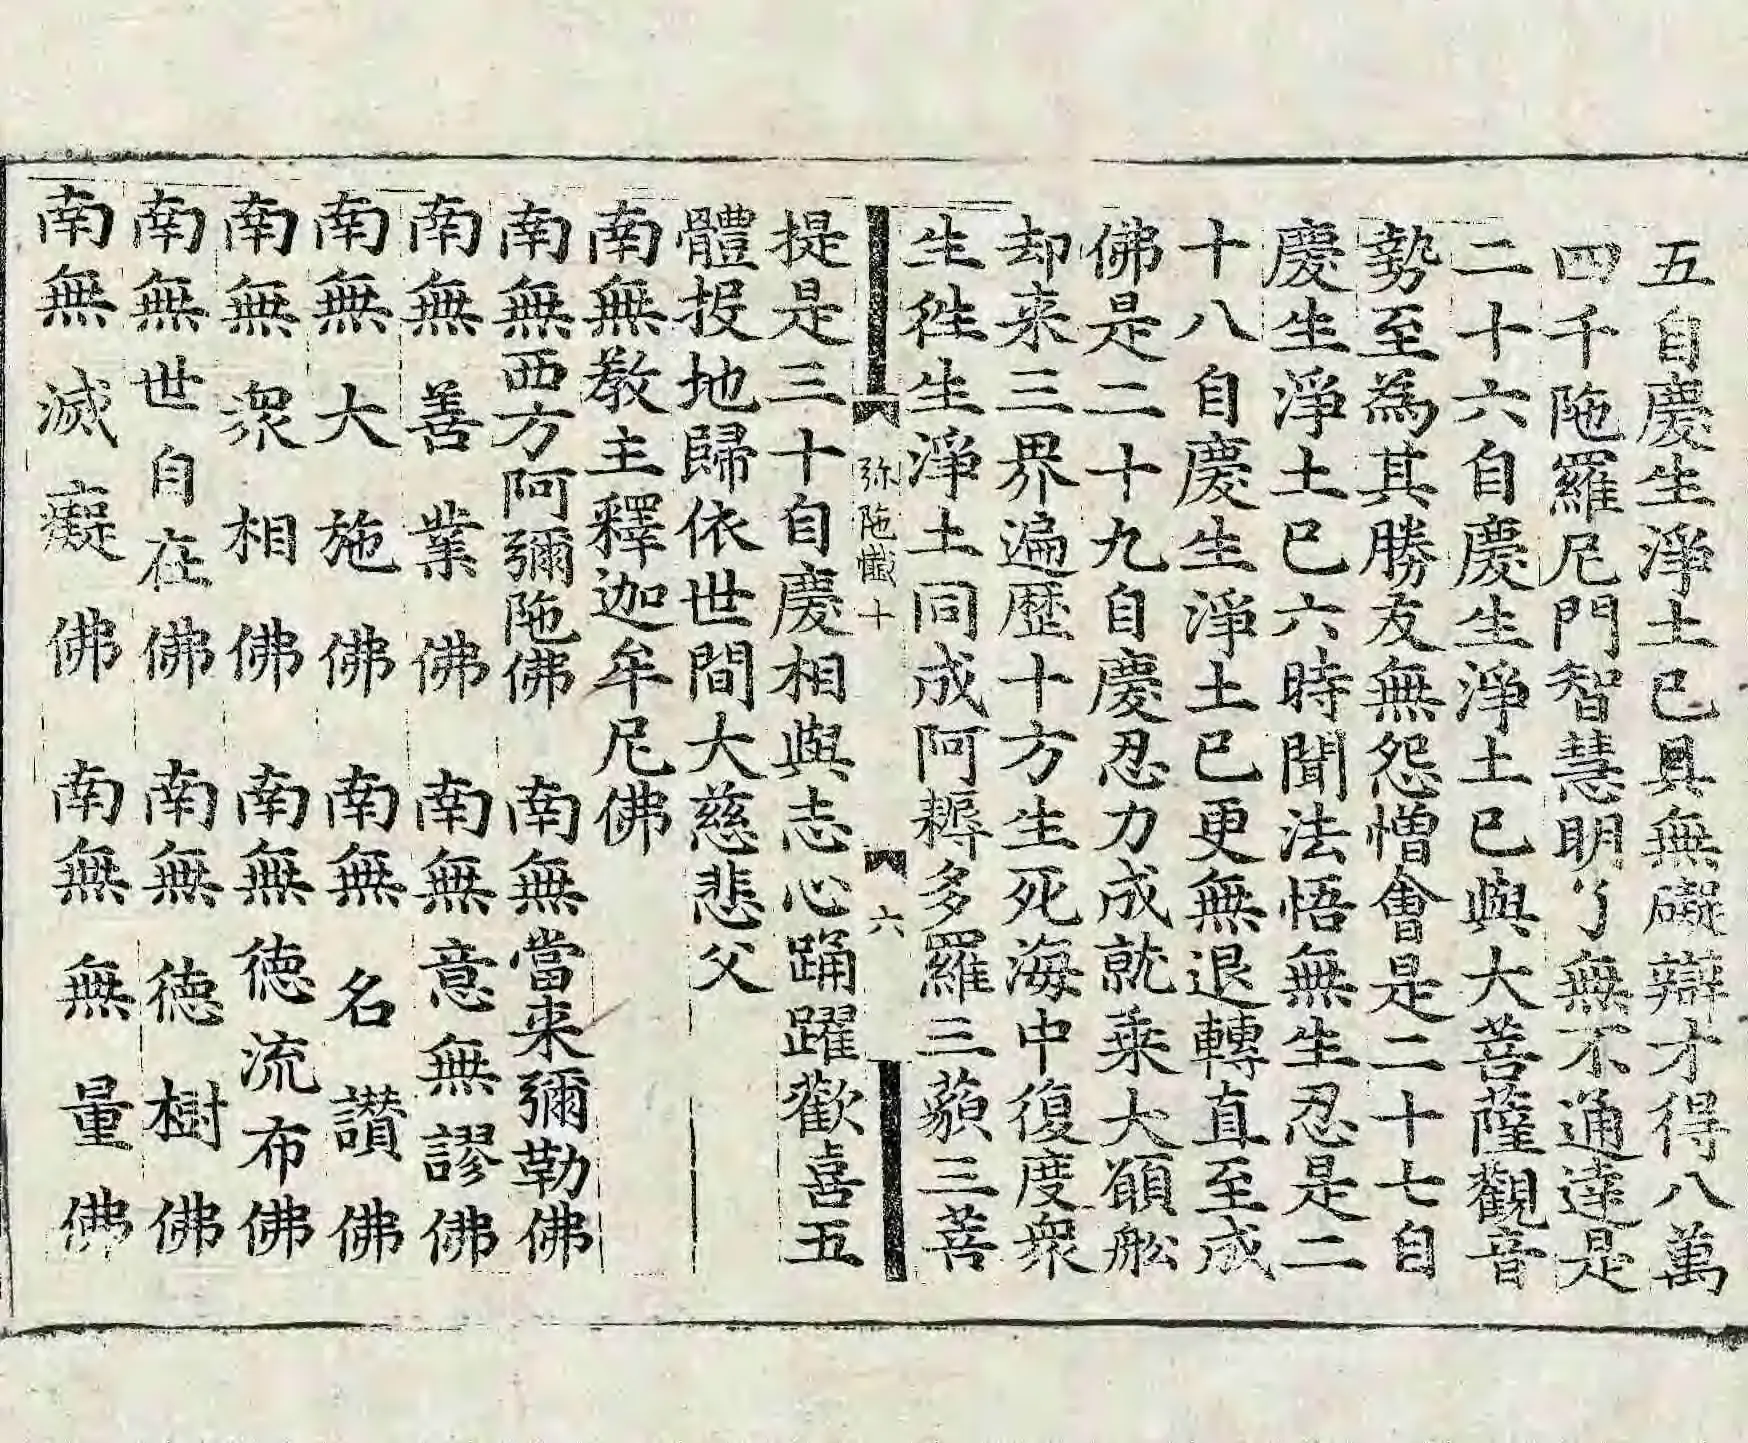 五自慶生淨土已具無礙辯才得八萬
四千陁羅尼門智慧明了無不通達是
二十六自慶生淨土已與大菩薩觀音
勢至為其勝友無怨憎會是二十七自
慶生淨土已六時聞法悟無生忍是二
十八自慶生淨土已更無退轉直至成
佛是二十九自慶忍力成就乗大願舩
却来三界遍歷十方生死海中復度衆
生徃生淨土同成阿耨多羅三藐三菩
弥陁懺十　六
提是三十自慶相與志心踊躍歡喜五
體投地歸依世間大慈悲父
南無教主釋迦牟尼佛
南無西方阿彌陁佛　南無當来彌勒佛
南無善業佛　南無意無謬佛
南無大施佛　南無名讃佛
南無衆相佛　南無德流布佛
南無世自在佛　南無德樹佛
南無滅癡佛　南無無量佛